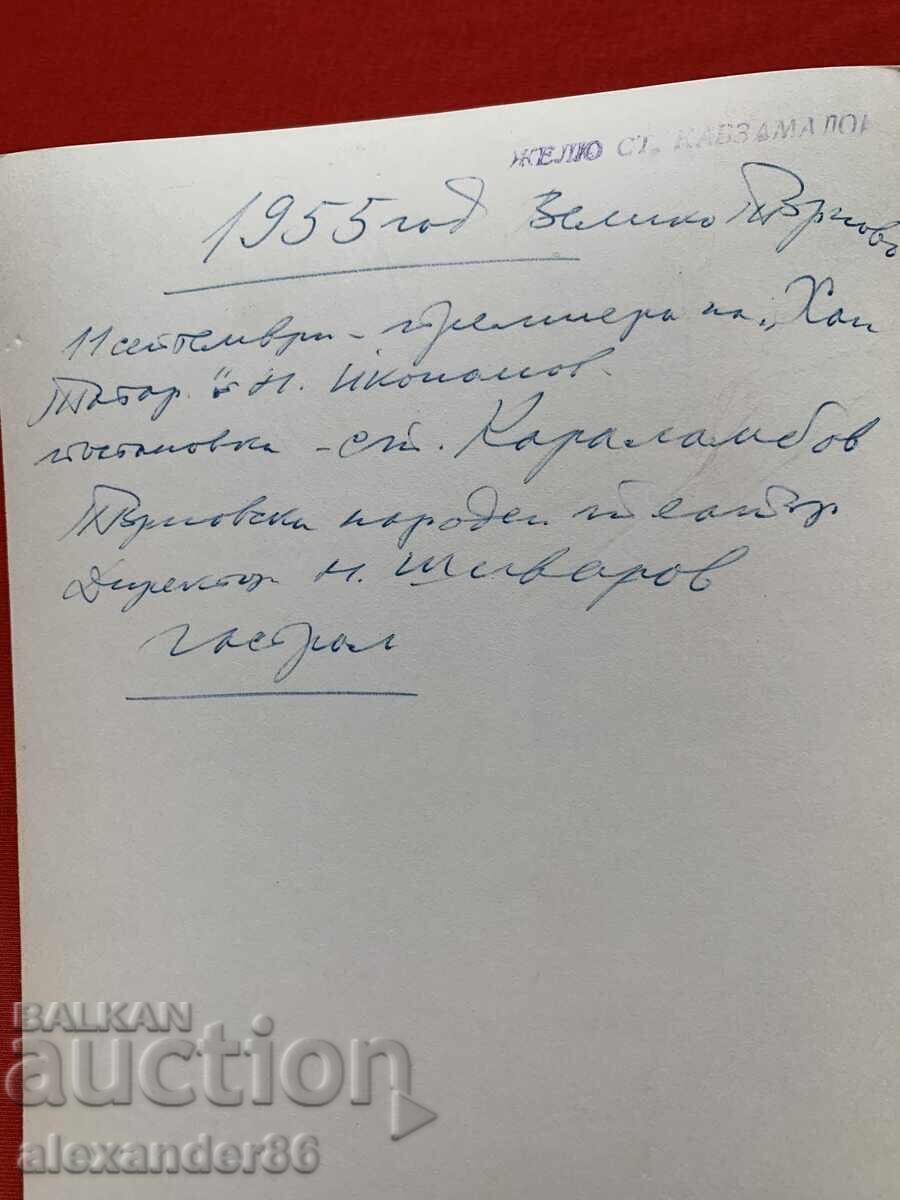 ЖЕЛЮ СТ. КАВЗАМАЛОВ
1955 год Велико Търново
11 септември - премиера на "Хан
Татар" - Н. Икономов
постановка - ст. Караламбов
Търновски народен театър
Директор Н. Шиваров
гастрол
BALKAN
auction
alexander86